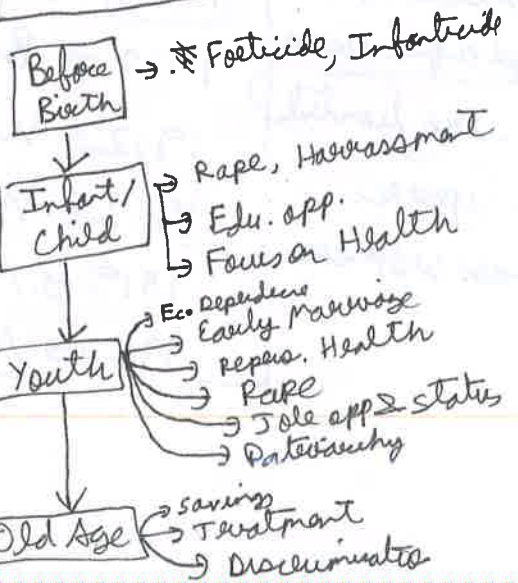 Before
Birth
Foeticide, Infanticide
Infant/
Child
Rape, Harrassment
Edu. opp.
Focus on Health
Youth
Eco Dependence
Early Marriage
Repro. Health
Rape
Job opp & status
Patriarchy
Old Age
Savings
Treatment
Discrimination